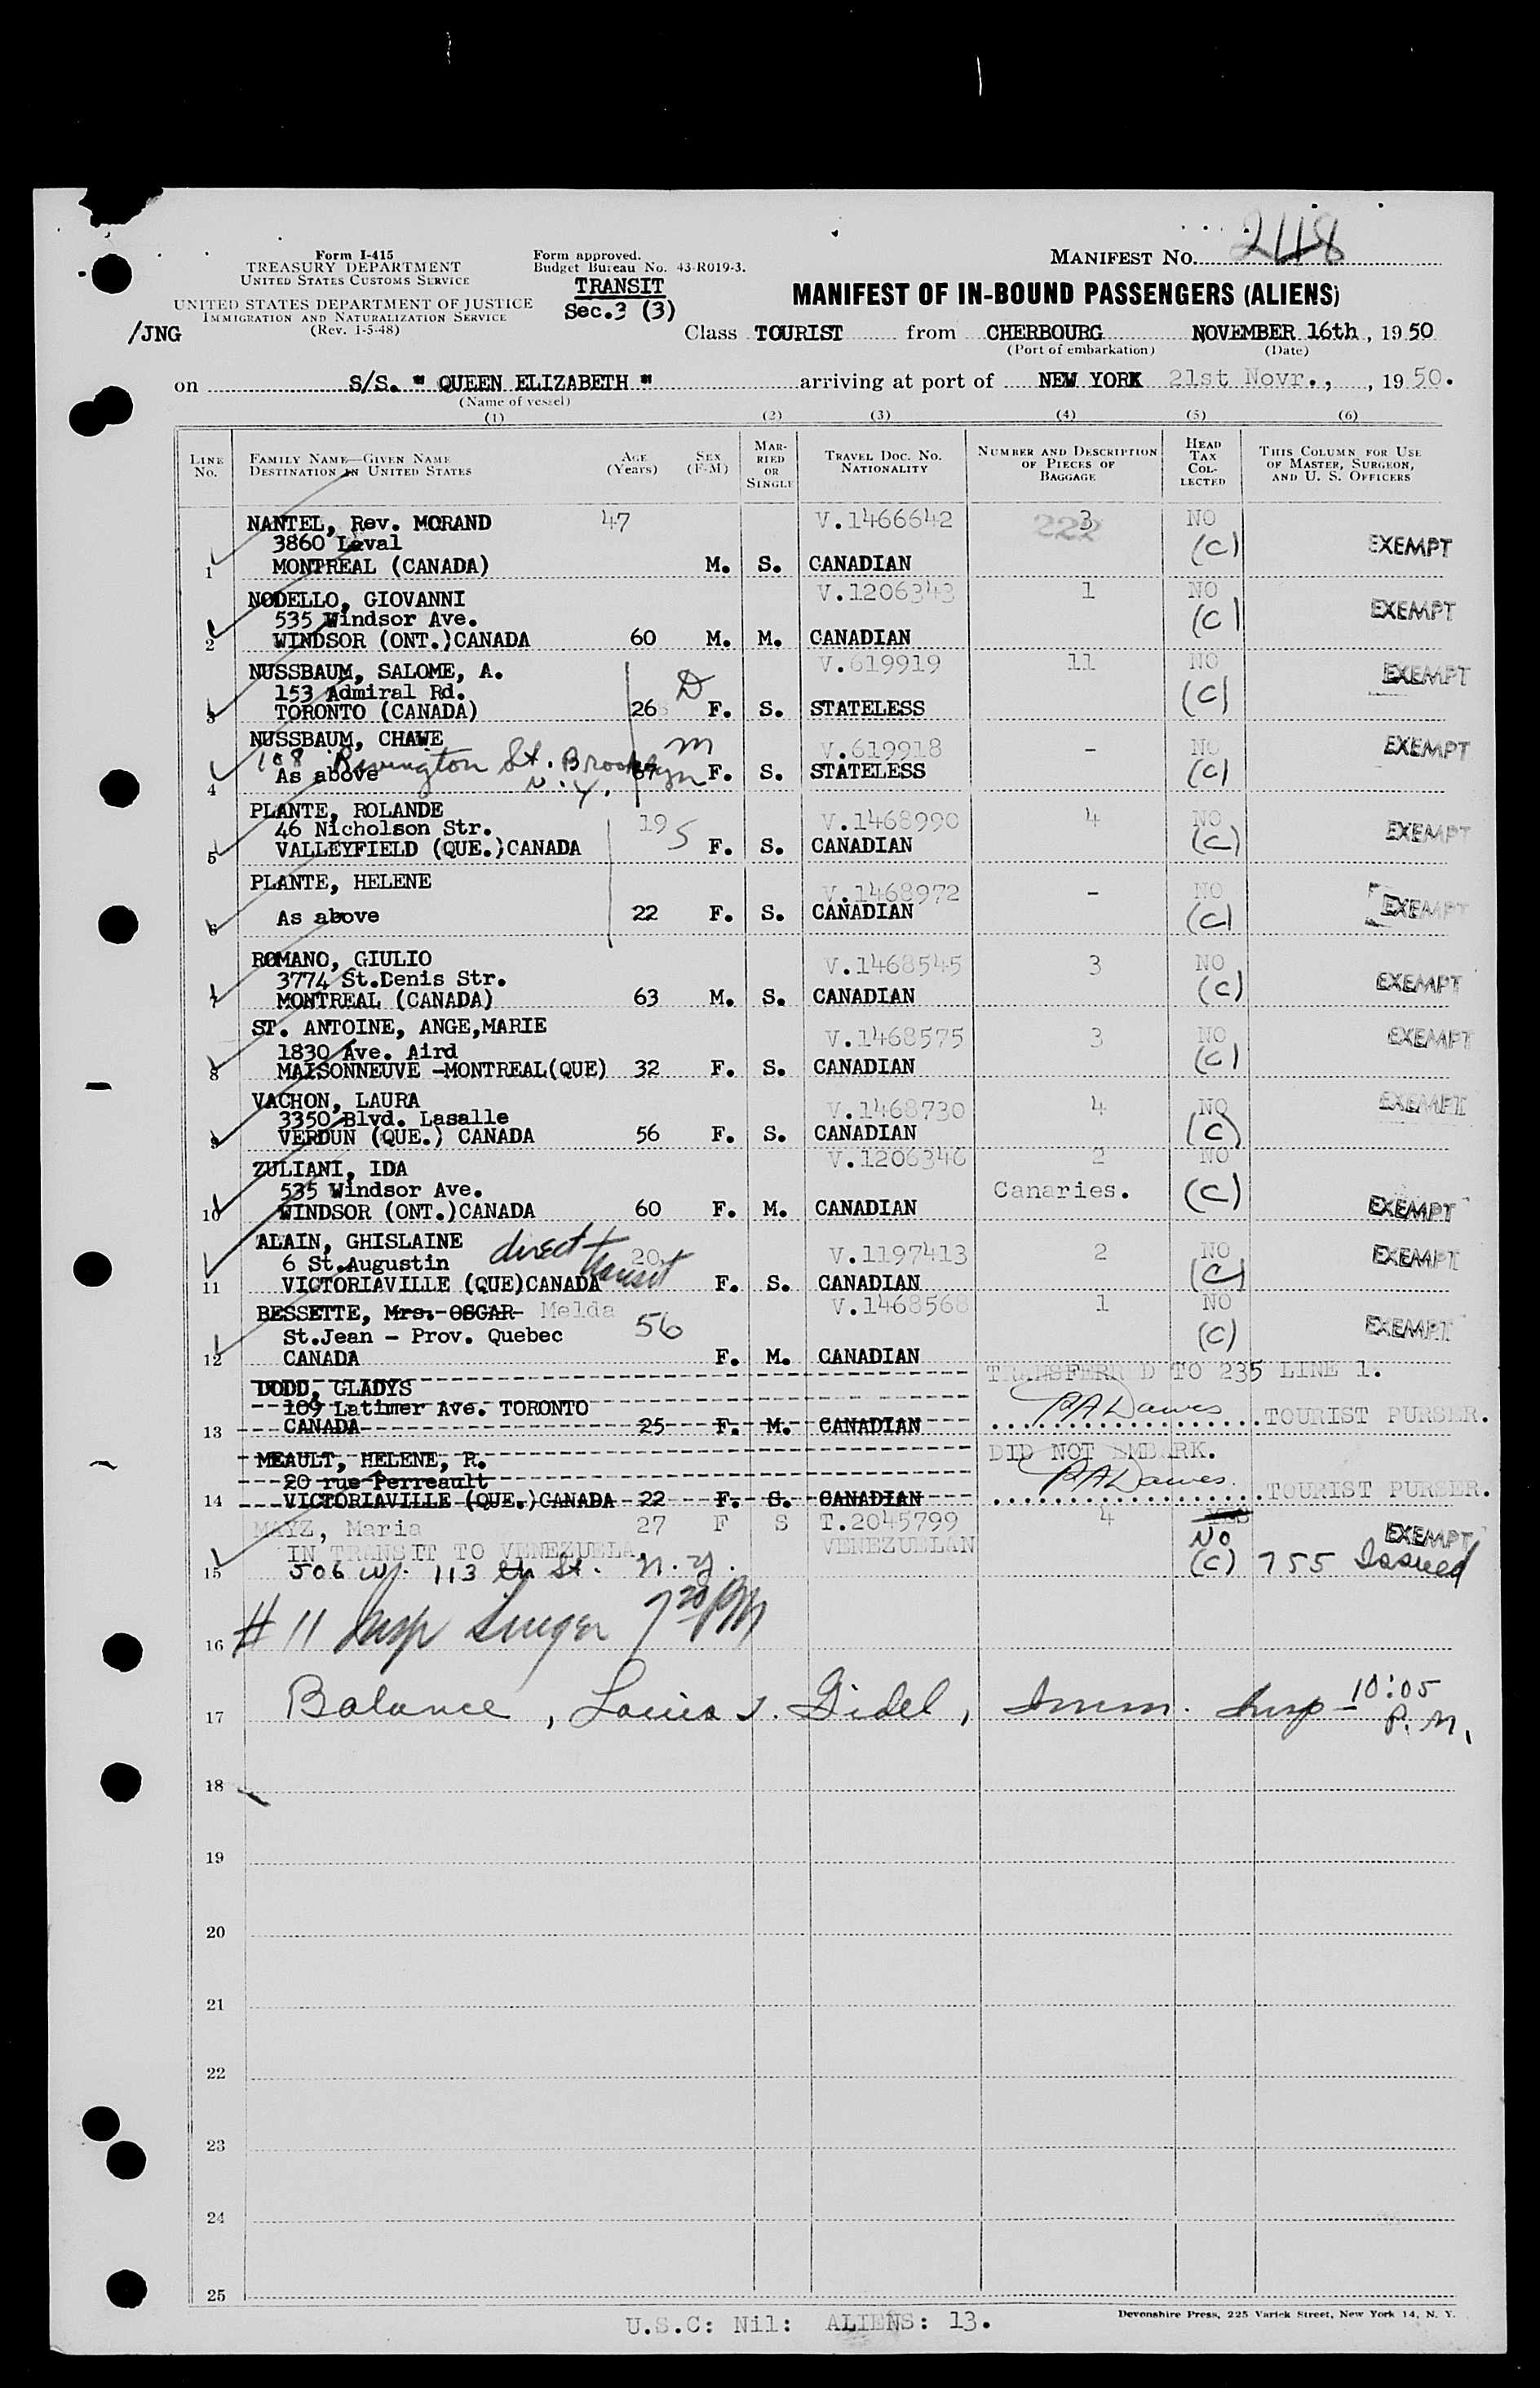 Form I-415
TREASURY DEPARTMENT
UNITED STATES CUSTOMS SERVICE
UNITED STATES DEPARTMENT OF JUSTICE
IMMIGRATION AND NATURALIZATION SERVICE
(Rev. 1-5-48)
/JNG
Form approved.
Budget Bureau No. 43-R019-3.
TRANSIT
Sec.3 (3)
MANIFEST NO. 248
MANIFEST OF IN-BOUND PASSENGERS (ALIENS)
Class TOURIST from CHERBOURG NOVEMBER 16th, 1950
(Port of embarkation) (Date)
on S/S. " QUEEN ELIZABETH " arriving at port of NEW YORK 21st Novr., , 1950.
(Name of vessel)
(1) (2) (3) (4) (5) (6)
LINE No. FAMILY NAME—GIVEN NAME DESTINATION IN UNITED STATES AGE (Years) SEX (F-M) MARRIED OR SINGLE TRAVEL DOC. NO. NATIONALITY NUMBER AND DESCRIPTION OF PIECES OF BAGGAGE HEAD TAX COLLECTED THIS COLUMN FOR USE OF MASTER, SURGEON, AND U. S. OFFICERS
NANTEL, Rev. MORAND 47 V.1466642 222 3 NO
3860 Laval (C) EXEMPT
1 MONTREAL (CANADA) M. S. CANADIAN
NODELLO, GIOVANNI V.1206343 1 NO
535 Windsor Ave. (C) EXEMPT
2 WINDSOR (ONT.)CANADA 60 M. M. CANADIAN
NUSSBAUM, SALOME, A. V.619919 11 NO
153 Admiral Rd. D (C) EXEMPT
3 TORONTO (CANADA) 26 F. S. STATELESS
NUSSBAUM, CHAWE m V.619918 - NO EXEMPT
108 Rivington St. Brooklyn N.Y.
4 As above F. S. STATELESS (C)
PLANTE, ROLANDE 19 5 V.1468990 4 NO
46 Nicholson Str. (C) EXEMPT
5 VALLEYFIELD (QUE.)CANADA F. S. CANADIAN
PLANTE, HELENE V.1468972 - NO
6 As above 22 F. S. CANADIAN (C) EXEMPT
ROMANO, GIULIO V.1468545 3 NO
3774 St.Denis Str. (C) EXEMPT
7 MONTREAL (CANADA) 63 M. S. CANADIAN
ST. ANTOINE, ANGE,MARIE V.1468575 3 NO EXEMPT
1830 Ave. Aird (C)
8 MAISONNEUVE -MONTREAL(QUE) 32 F. S. CANADIAN
VACHON, LAURA V.1468730 4 NO EXEMPT
3350 Blvd. Lasalle (C)
9 VERDUN (QUE.) CANADA 56 F. S. CANADIAN
ZULIANI, IDA V.1206346 2 NO
535 Windsor Ave. Canaries. (C)
10 WINDSOR (ONT.)CANADA 60 F. M. CANADIAN EXEMPT
ALAIN, GHISLAINE direct transit 20 V.1197413 2 NO EXEMPT
6 St.Augustin (C)
11 VICTORIAVILLE (QUE)CANADA F. S. CANADIAN
BESSETTE, Mrs. OSCAR Melda 56 V.1468568 1 NO
St.Jean - Prov. Quebec (C) EXEMPT
12 CANADA F. M. CANADIAN
DODD, GLADYS TRANSFERRED TO 235 LINE 1.
109 Latimer Ave. TORONTO PA Dawes
13 CANADA 25 F. M. CANADIAN TOURIST PURSER.
MEAULT, HELENE, R. DID NOT EMBARK.
20 rue Perreault PA Dawes
14 VICTORIAVILLE (QUE.)CANADA 22 F. S. CANADIAN TOURIST PURSER.
MAYZ, Maria 27 F S T.2045799 4 YES NO EXEMPT
IN TRANSIT TO VENEZUELA, VENEZUELAN
15 506 W. 113 th St. N.Y. (C) 755 Issued
16 # 11 Insp Singer 7 20 PM
17 Balance, Louis J. Gidel, Imm. Insp - 10:05 P.M.
18
19
20
21
22
23
24
25
U.S.C: Nil: ALIENS: 13.
Devonshire Press, 225 Varick Street, New York 14, N. Y.